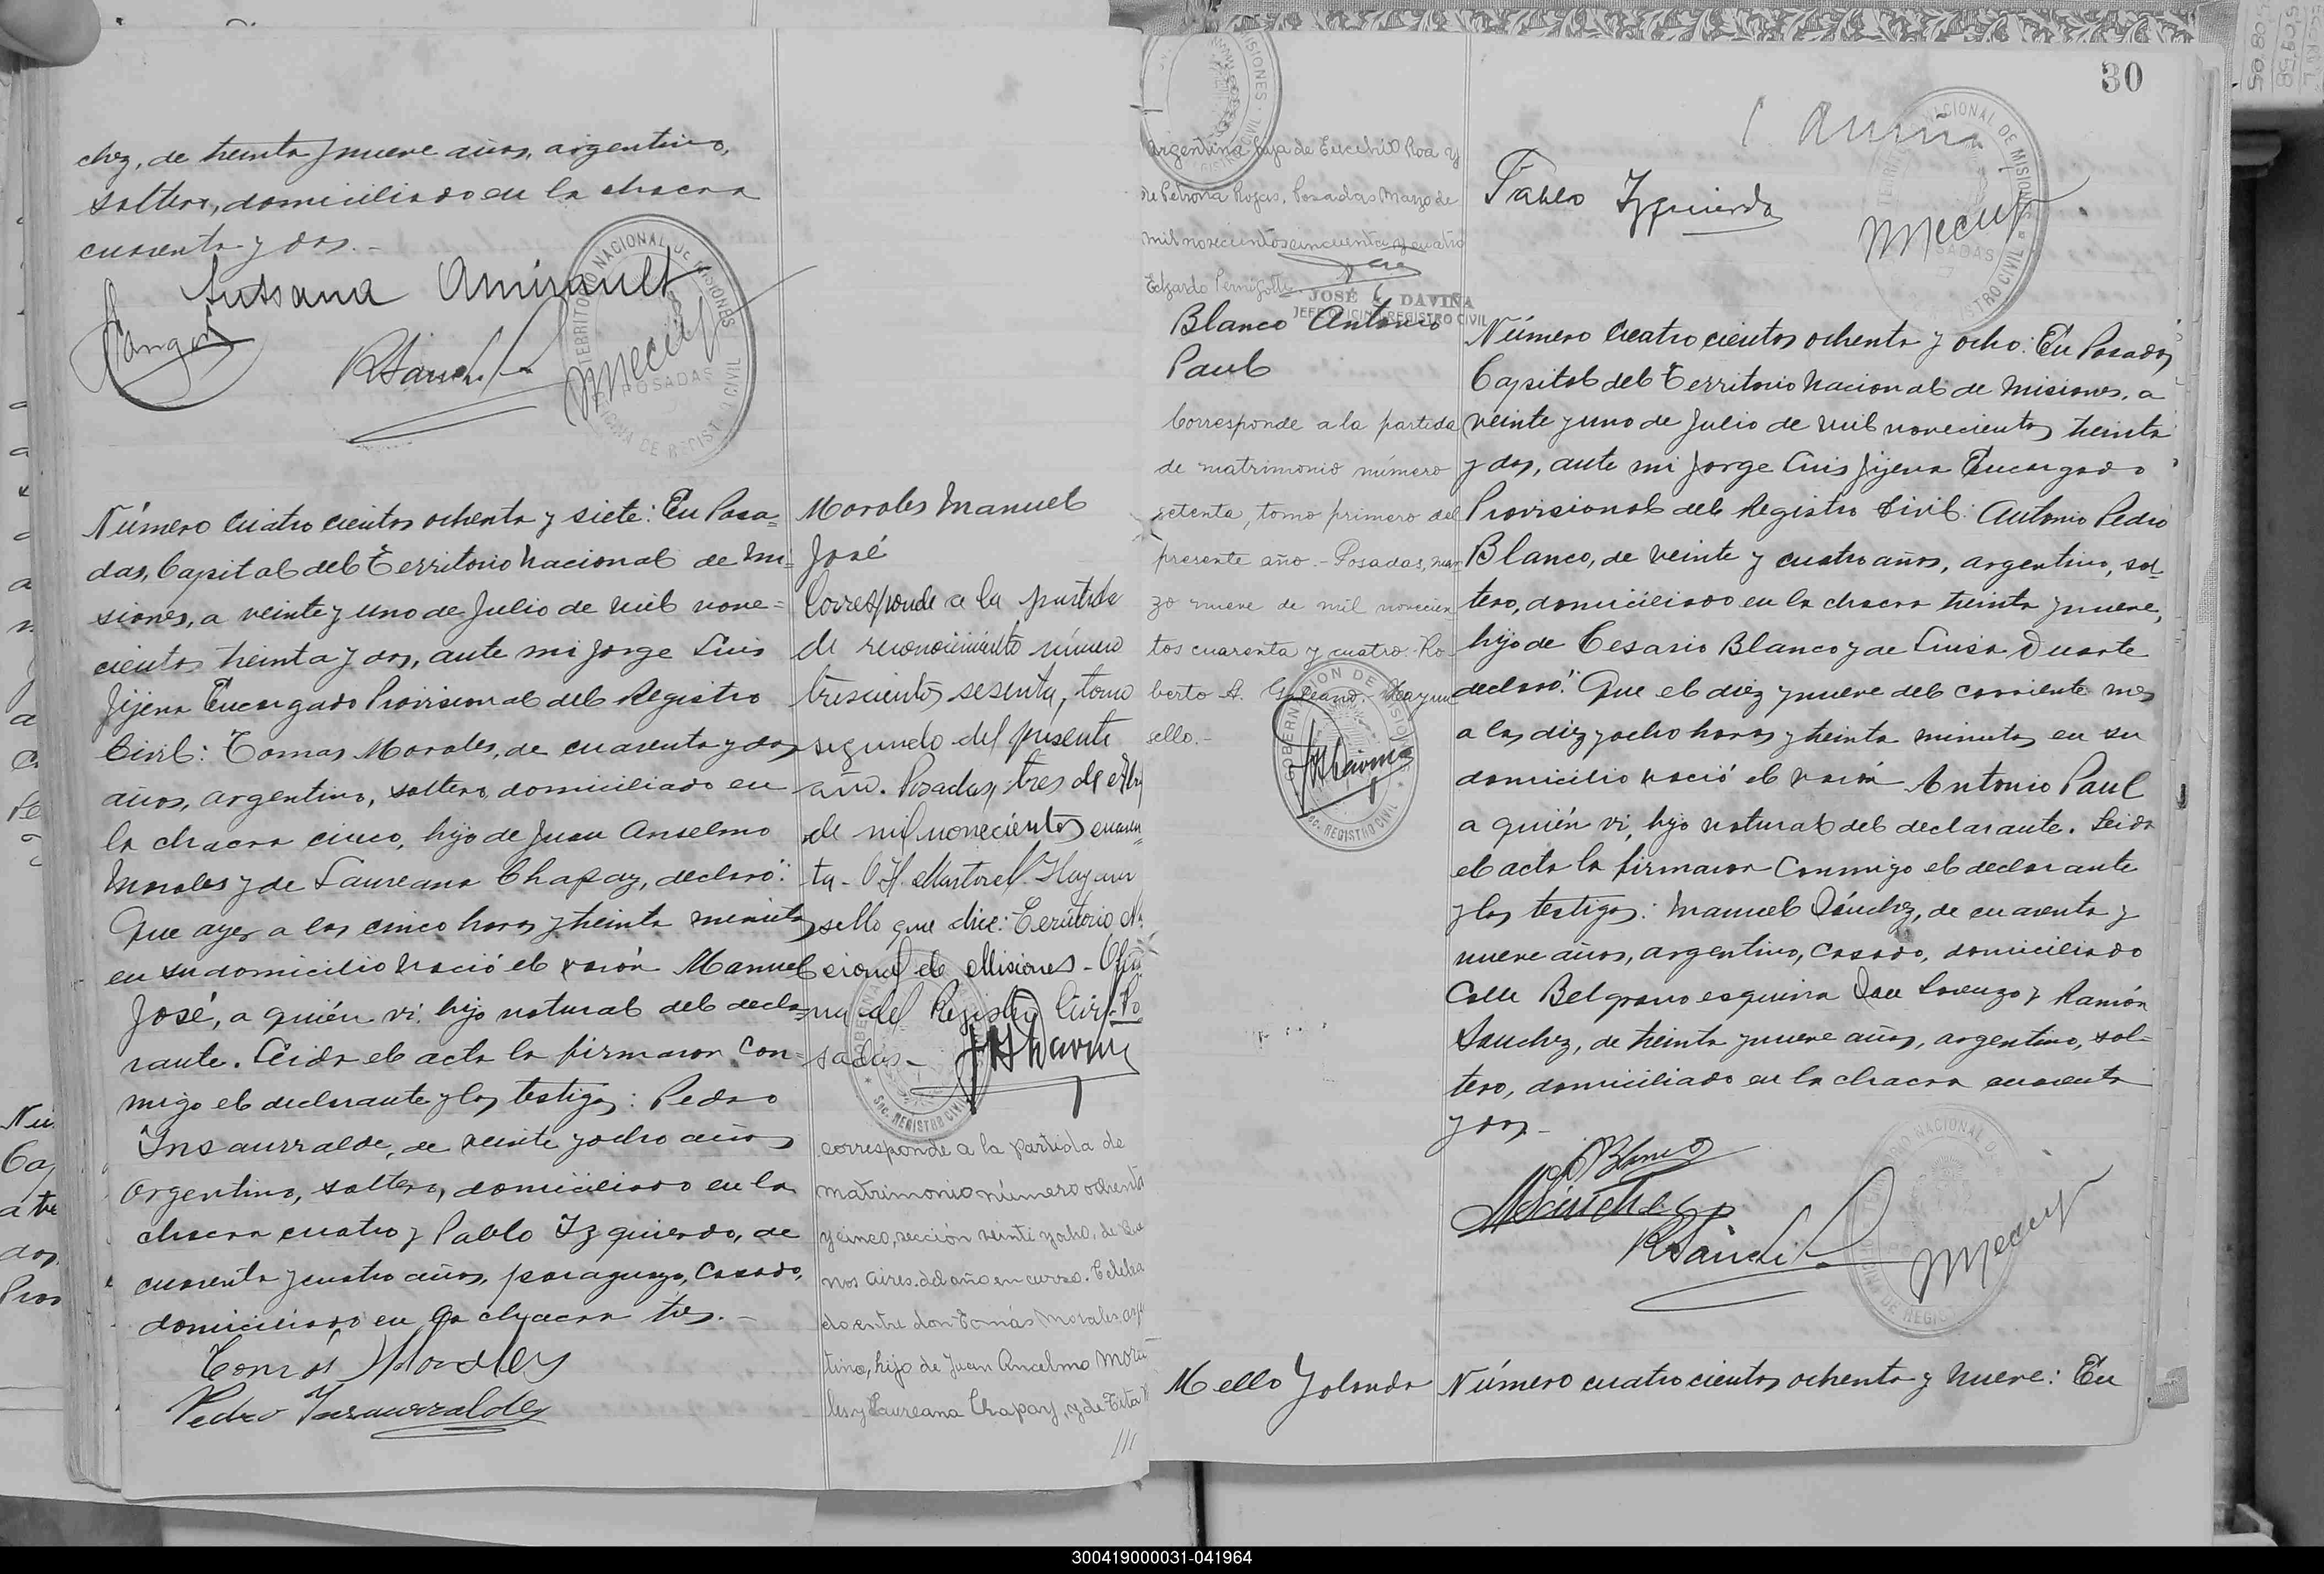 chez, de treinta y nueve años, argentino,
soltero, domiciliado en la chacra
cuarenta y dos.-
Amirault
RSanch
TERRITORIO NACIONAL DE MISIONES
POSADAS
OFICINA DE REGISTRO CIVIL
Número cuatro cientos ochenta y siete: En Posa=
das, Capital del Territorio Nacional de Mi=
siones, a veinte y uno de Julio de mil nove=
cientos treinta y dos, ante mi Jorge Luis
Jijena Encargado Provisional del Registro
Civil: Tomas Morales, de cuarenta y dos
años, argentino, soltero, domiciliado en
la chacra cinco, hijo de Juan Anselmo
Morales y de Laureana Chapay, declaró:
Que ayer a las cinco horas y treinta minutos
en su domicilio nació el varón Manuel
José, a quién vi, hijo natural del decla=
rante. Leida el acta la firmaron con=
migo el declarante y los testigos: Pedro
Insaurralde, de veinte y ocho años
argentino, soltero, domiciliado en la
chacra cuatro y Pablo Izquierdo, de
cuarenta y cuatro años, paraguayo, casado,
domiciliado en la chacra tres.-
Tomás Morales
Pedro Insaurralde
Morales Manuel
José
Corresponde a la partida
de reconocimiento número
trescientos sesenta, tomo
segundo del presente
año. Posadas, tres de
de mil novecientos cuaren=
ta - Hay un
sello que dice: Territorio Na
cional de Misiones - Ofici
na del Registro Civil - Po
sadas -
SEC. REGISTRO CIVIL
corresponde a la partida de
matrimonio número ochenta
y cinco, sección veinti y ocho, de Bue
nos Aires, del año en curso. Celebra
do entre don Tomás Morales, arge
tino, hijo de Juan Ancelmo Mora
les y Laureana Chapay, y de Tita
///
30
argentina, hija de Roa y
de Petrona Rojas. Posadas Marzo de
mil novecientos cincuenta y cuatro
Edgardo
JOSÉ DAVIÑA
JEFE OFICINA REGISTRO CIVIL
Pablo Izquierdo
Blanco Antonio
Paul
Corresponde a la partida
de matrimonio número
setenta, tomo primero del
presente año.- Posadas, mar
zo nueve de mil novecien
tos cuarenta y cuatro.- Ro
berto A. Galeano. Hay un
sello.-
GOBERNACION DE MISIONES
SEC. REGISTRO CIVIL
Número cuatro cientos ochenta y ocho: En Posadas,
Capital del Territorio Nacional de Misiones, a
veinte y uno de Julio de mil novecientos treinta
y dos, ante mi Jorge Luis Jijena Encargado
Provisional del Registro Civil: Antonio Pedro
Blanco, de veinte y cuatro años, argentino, sol=
tero, domiciliado en la chacra treinta y nueve,
hijo de Cesario Blanco y de Luisa Duarte
declaró: Que el diez y nueve del corriente mes
a las diez y ocho horas y treinta minutos en su
domicilio nació el varón Antonio Paul
a quién vi, hijo natural del declarante. Leida
el acta la firmaron conmigo el declarante
y los testigos: Manuel Sánchez, de cuarenta y
nueve años, argentino, casado, domiciliado
Calle Belgrano esquina San Lorenzo y Ramón
Sanchez, de treinta y nueve años, argentino, sol=
tero, domiciliado en la chacra cuarenta
y dos -
Blanco
MSánchez
RSanch
Mello Yolanda
Número cuatro cientos ochenta y nueve: En
300419000031-041964